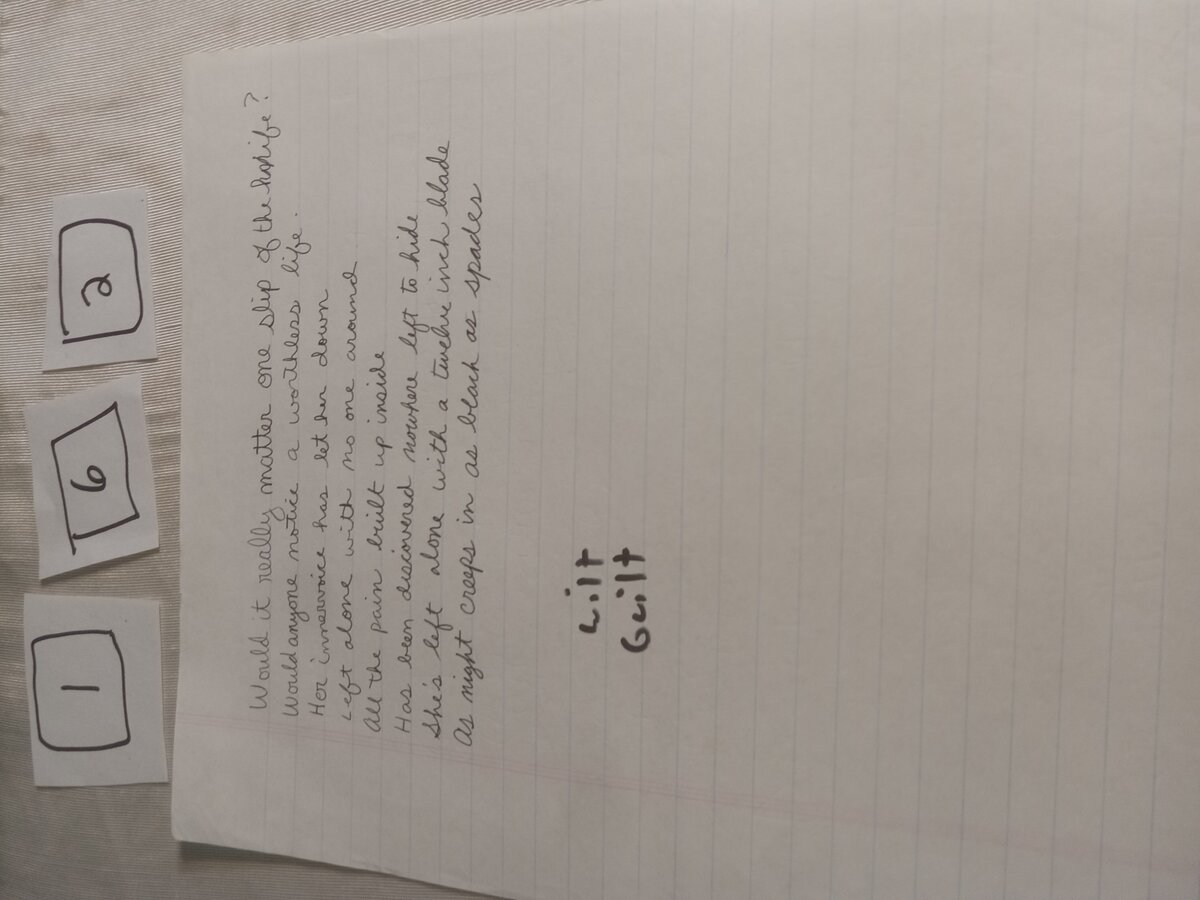 1 6 2
Would it really matter one slip of the knife?
Would anyone notice a worthless life.
Her innervoice has let her down
Left alone with no one around
All the pain built up inside
Has been discovered nowhere left to hide
She's left alone with a twelve inch blade
As night creeps in as black as spades